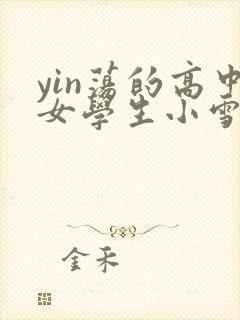 yin蕩的高中
女學生小雪
金禾